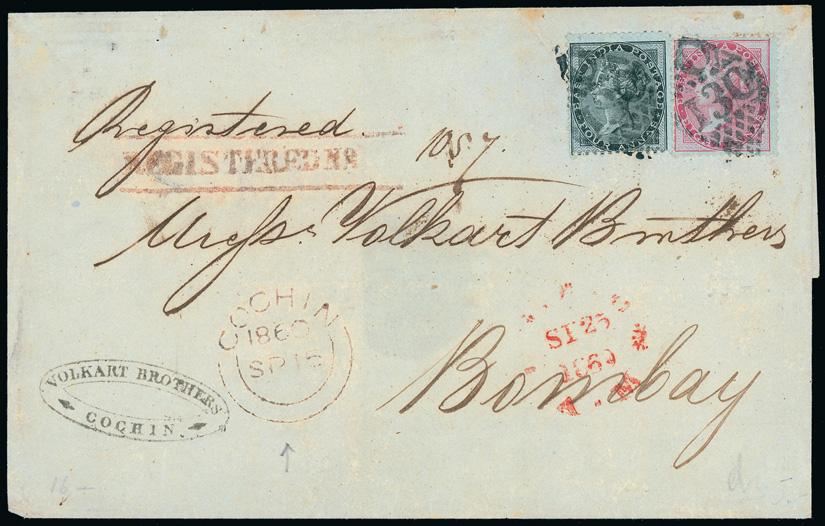 EAST INDIA POSTAGE
FOUR ANNAS
130
Registered.
REGISTERED Nº
1087.
Messrs. Volkart Brothers
Bombay
COCHIN
1860
SP 15
SP 25
1860
VOLKART BROTHERS
COCHIN.
16 –